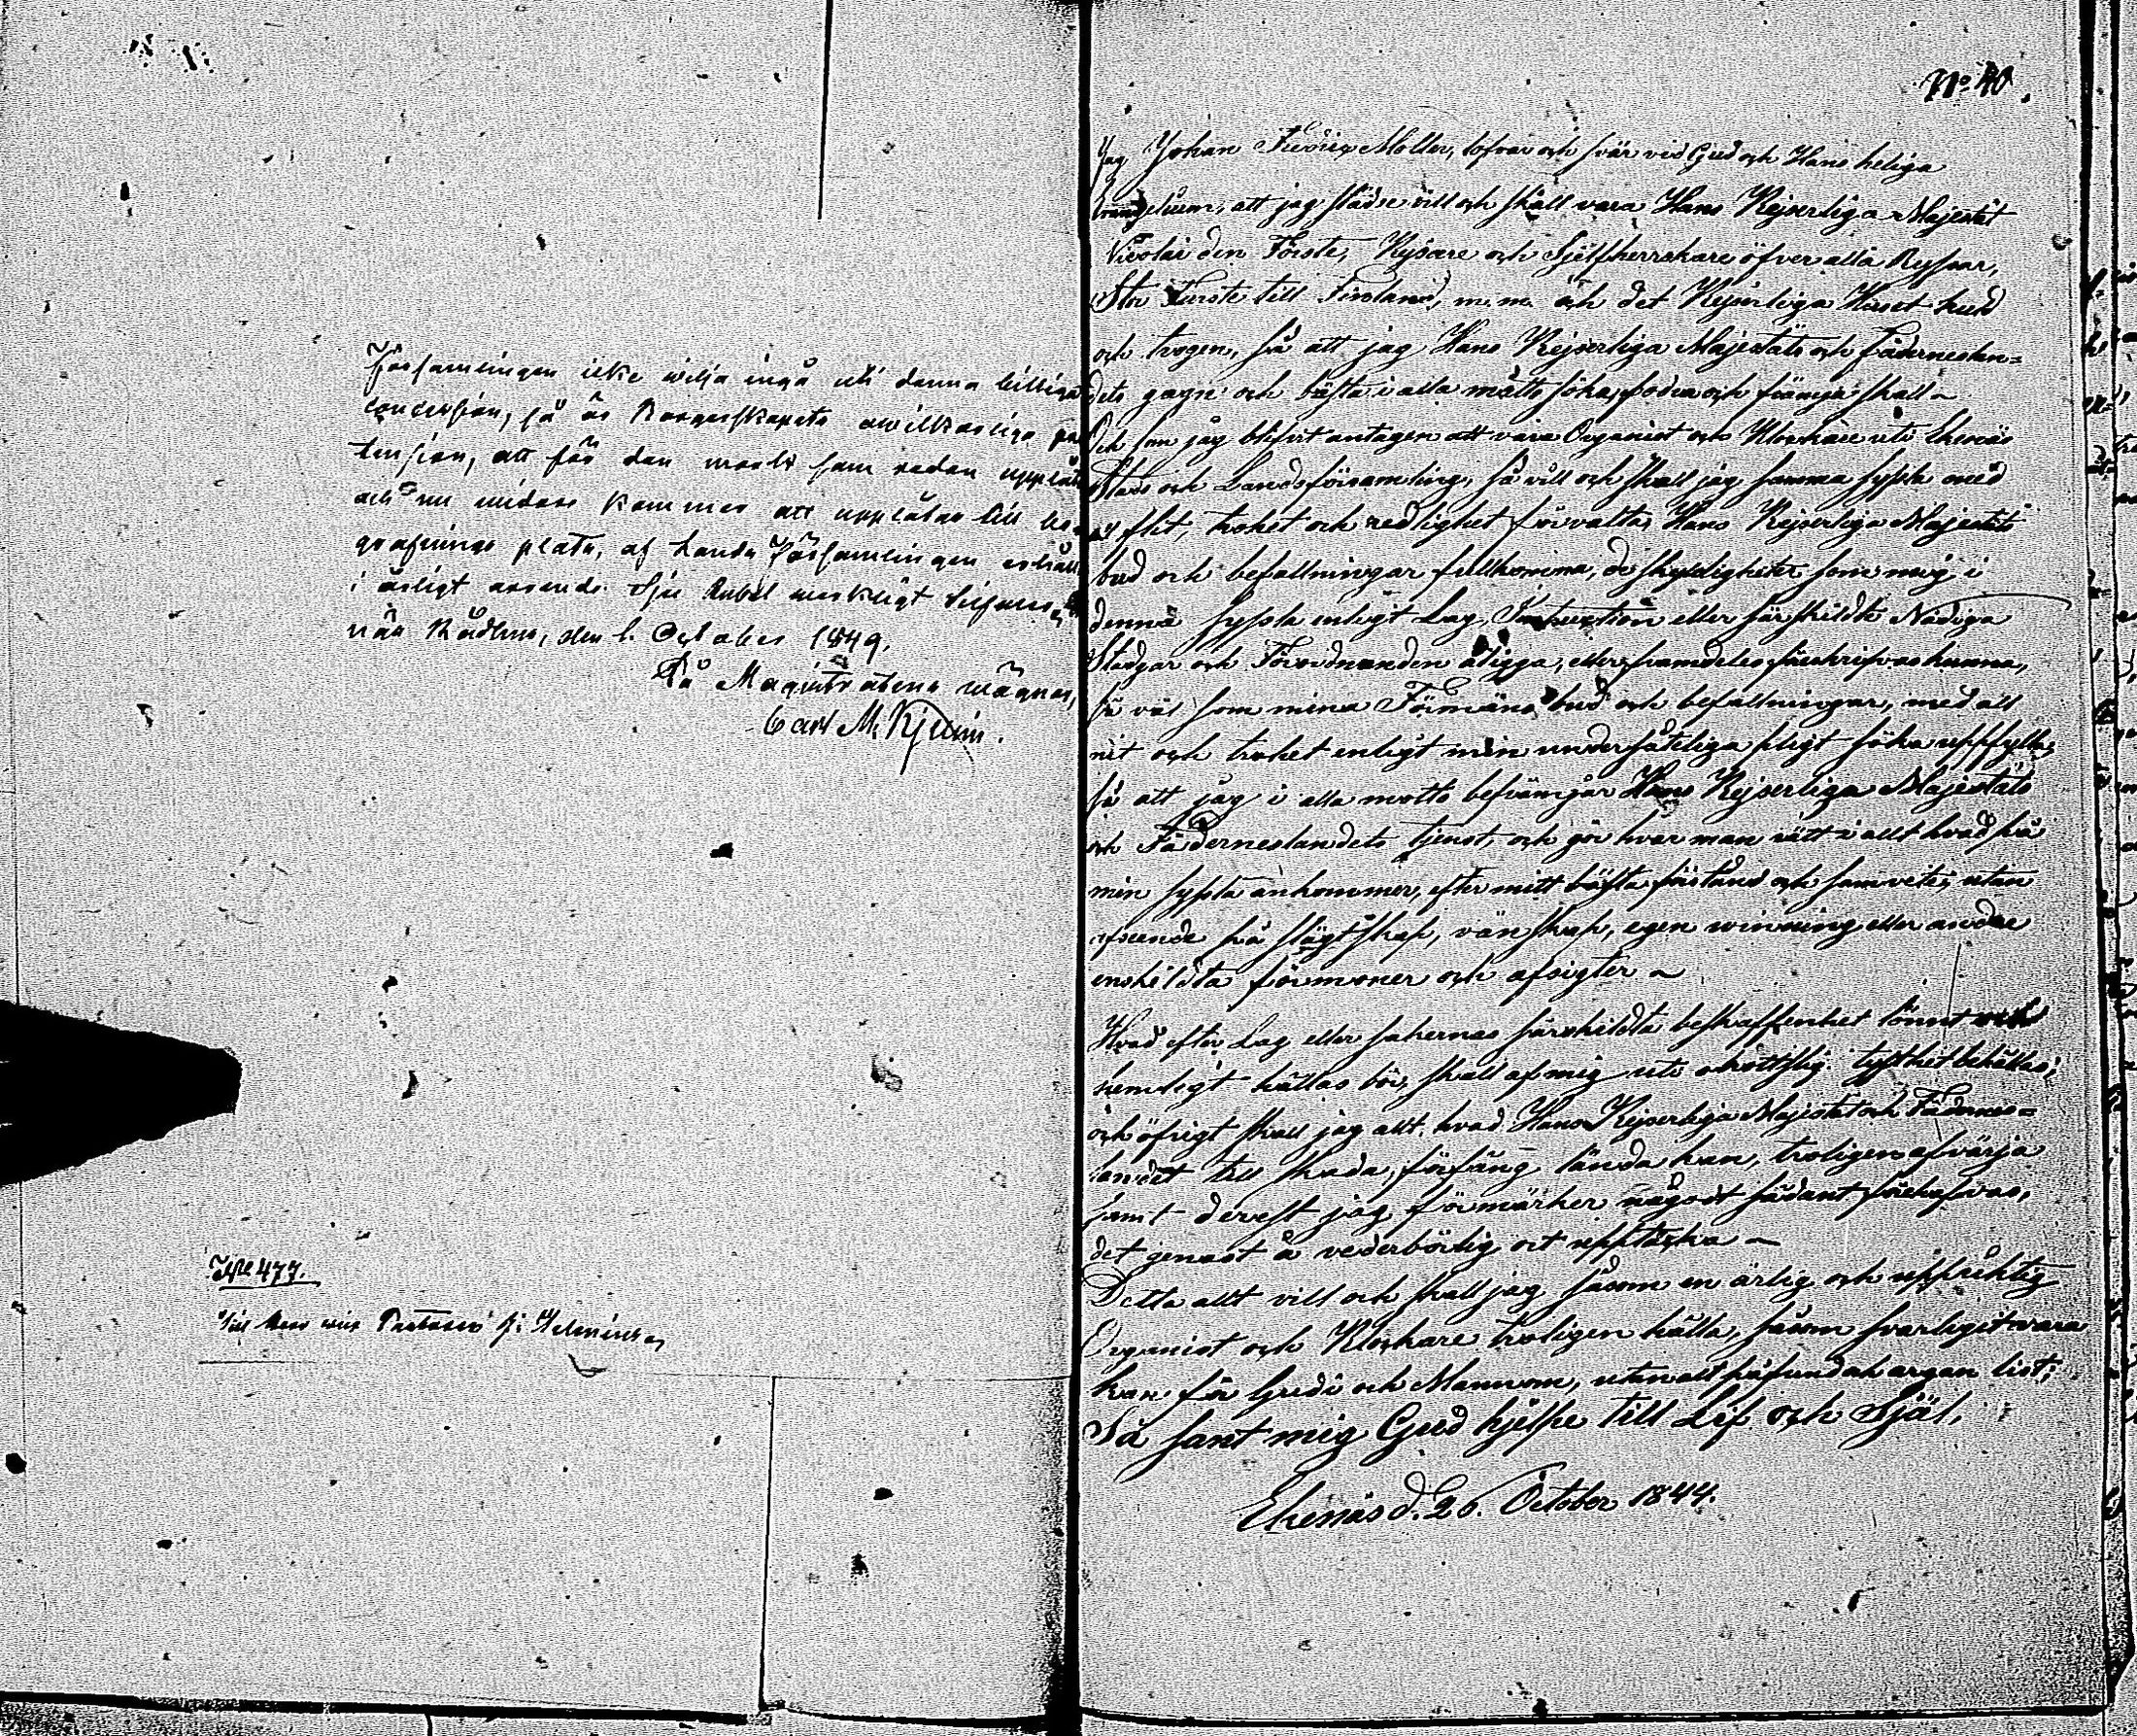 Församlingen icke wilja ingå uti denna billiga
concession, så är Borgerskapets owilkorliga pre
tension, att för den mark som redan upplåtits
och nu widare kommer att upplåtas till be
grafnings plats, af Lands Församlingen erhålla
i årligt arrende Sju Rubel
nås Rådhus, den 1. October 1849.
På Magistratens wägnar,
Carl M.
477.
Till Herr
No 40.
Jag Johan Fredrix Möller, lofvar och svär vid Gud och Hans heliga
Evangelium, att jag städse vill och skall vara Hans Kejserliga Majestät
Nicolai den Förste, Kejsare och Sjelfherrskare öfver alla Ryssar,
Stor Furste till Finland, m.m. och det Kejserliga Huset huld
och trogen, så att jag Hans Kejserliga Majestäts och Fäderneslan=
dets gagn och bästa i alla måtto söka, fodra och främja skall ~
Och som jag blifvit antagen att vara Organist och Klockare uti Ekenäs
Stads och Landsförsamling, så vill och skall jag samma syssla med
all flit, trohet och redlighet förvalta, Hans Kejserliga Majestäts
bud och befallningar fullkomma, de skyldigheter som mig i
denna syssla enligt Lag, Instruction eller särskildte Nådiga
Stadgar och Förordnanden åligga, eller framdeles föreskrifvas kunna,
så väl som mina Förmäns bud och befallningar, med all
nit och trohet enligt min undersåteliga pligt söka uppfylla,
så att jag i alla motto befrämjar Hans Kejserliga Majestäts
och Fäderneslandets tjenst, och gör hvar man rätt i allt hvad på
min syssla ankommer, efter mitt bästa förstånd och samvete, utan
afseende på slägtskap, vänskap, egen winning eller andre
enskildta förmoner och afsigter ~
Hvad efter Lag eller sakernas särskildta beskaffenhet lönnt och
hemligt hållas bör, skall af mig uti obrottslig tysthet behållas;
och öfrigt skall jag allt, hvad Hans Kejserliga Majestät och Fädernes=
landet till skada, förfång lända kan, troligen afvärja
samt derest jag förmärker något sådant förehafvas,
det genast å vederbörlig ort upptäcka ~
Detta allt vill och skall jag såsom en ärlig och uppriktig
Organist och Klockare troligen hålla, såsom svarligit vara
kan för Gudi och Mannom, utan all påfund ok argan list;
Så sant mig Gud hjelpe till Lif och Själ.
Ekenäs d. 26. October 1844.